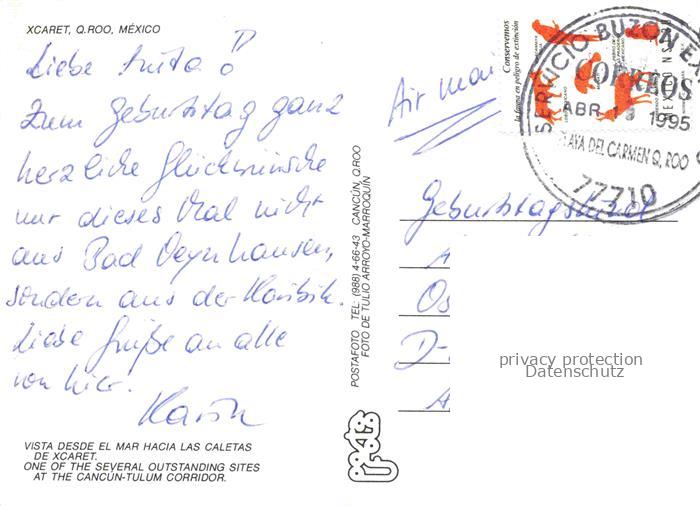 XCARET, Q.ROO, MÉXICO
Liebe Anita!
Zum Geburtstag ganz
herzliche Glückwünsche
nur dieses Mal nicht
aus Bad Oeynhausen,
sondern aus der Karibik.
Liebe Grüße an alle
von hier.
Karin
VISTA DESDE EL MAR HACIA LAS CALETAS
DE XCARET.
ONE OF THE SEVERAL OUTSTANDING SITES
AT THE CANCÚN-TULUM CORRIDOR.
POSTAFOTO TEL: (988) 4-66-43 CANCÚN, Q.ROO
FOTO DE TULIO ARROYO-MARROQUÍN
Air mail
Conservemos
la fauna en peligro de extinción
SERVICIO BUZON EX
CORREOS
ABR 1995
PLAYA DEL CARMEN Q, ROO
77710
Geburtstagskind
A
Os
D-
A
privacy protection
Datenschutz